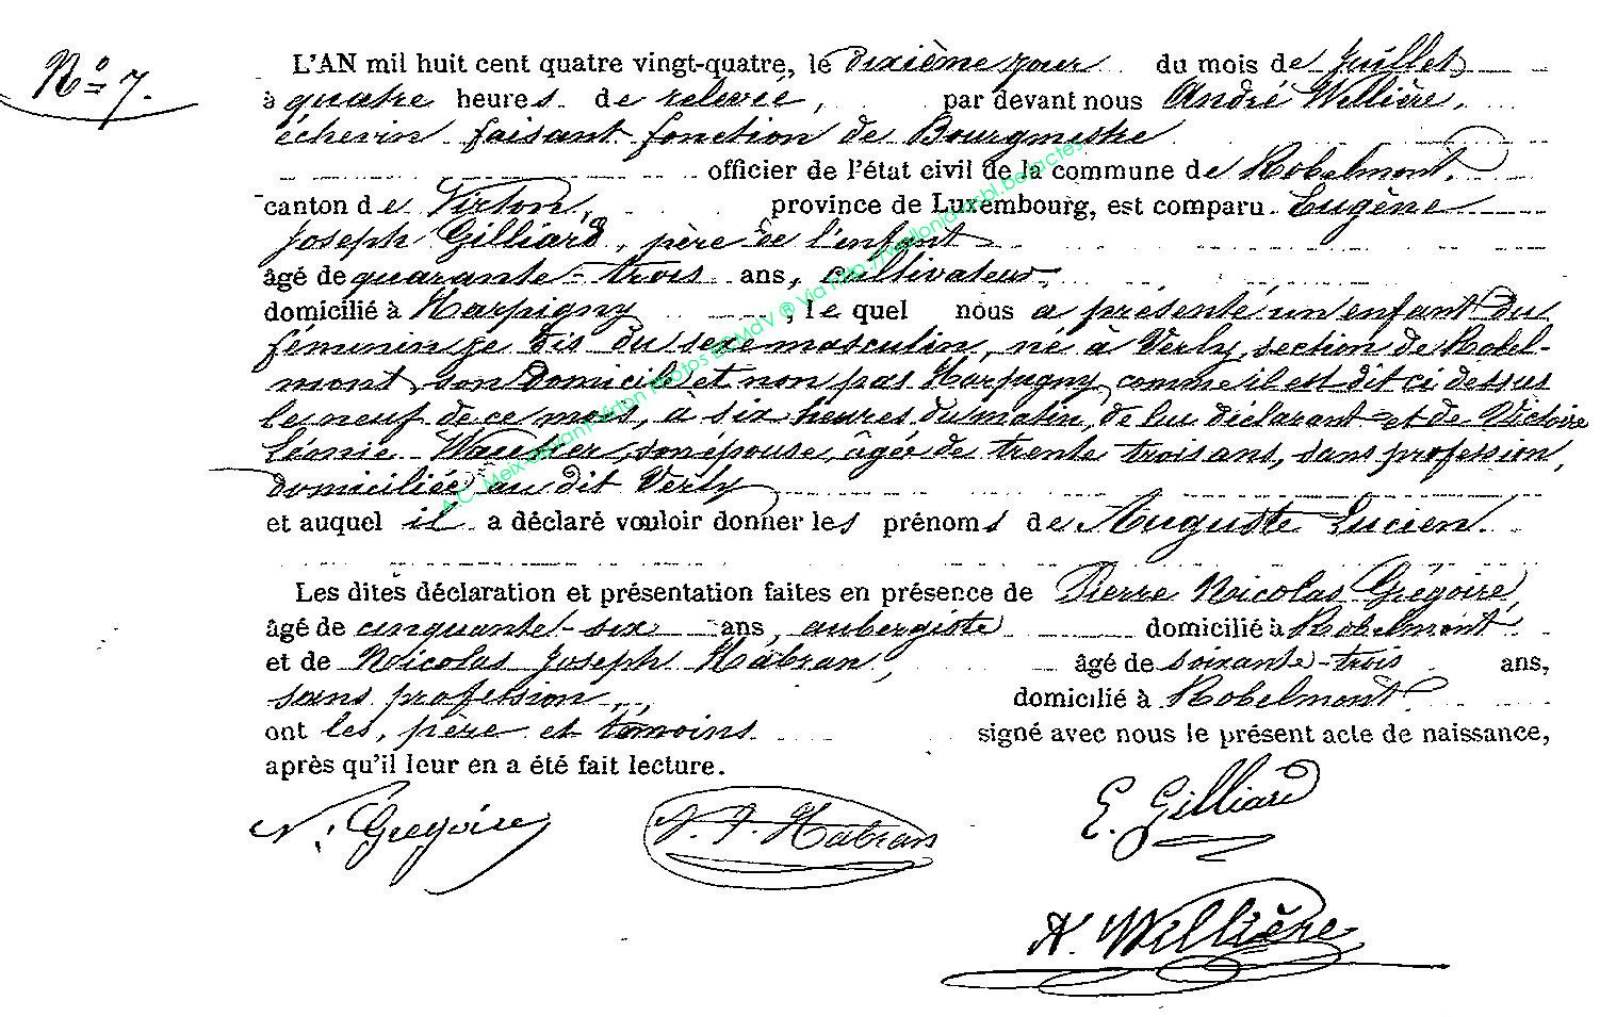 N° 7.
L'AN mil huit cent quatre vingt-quatre, le dixième jour du mois de Juillet
à quatre heures de relevée, par devant nous André Willière,
échevin faisant fonction de Bourgmestre
officier de l'état civil de la commune de Robelmont,
canton de Virton, province de Luxembourg, est comparu Eugène
Joseph Gilliard, père de l'enfant
âgé de quarante-trois ans, cultivateur,
domicilié à Harpigny, lequel nous a présenté un enfant du
féminin je dis du sexe masculin, né à Verly, section de Robel-
mont, son domicile et non pas Harpigny, comme il est dit ci dessus
le neuf de ce mois, à six heures du matin, de lui déclarant et de Victoire
Léonie son épouse, âgée de trente trois ans, sans profession,
domiciliée au dit Verly
et auquel il a déclaré vouloir donner les prénoms de Auguste Lucien.
Les dites déclaration et présentation faites en présence de Pierre Nicolas Grégoire,
âgé de cinquante-six ans, aubergiste domicilié à Robelmont
et de Nicolas Joseph Habran, âgé de soixante-trois ans,
sans profession, domicilié à Robelmont
ont les, père et témoins signé avec nous le présent acte de naissance,
après qu'il leur en a été fait lecture.
N. Gregoire
N. J. Habran
E. Gilliard
A. Willière